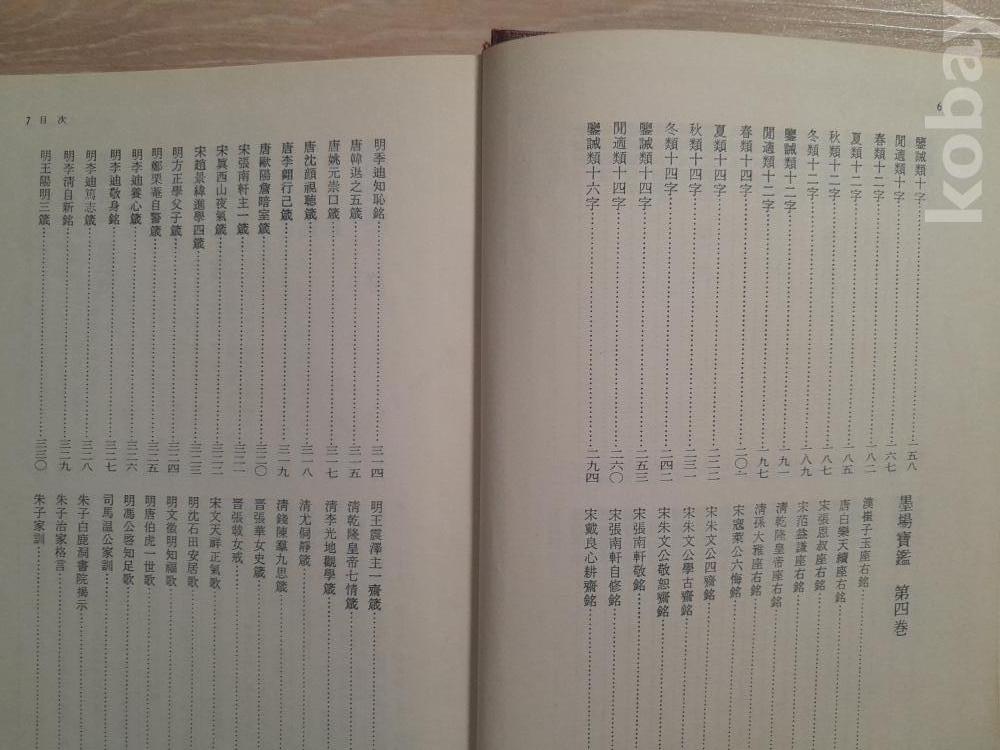 6
鑒誡類十字……一五八
閒適類十字……一六七
春類十二字……一八二
夏類十二字……一八五
秋類十二字……一八七
冬類十二字……一八九
鑒誡類十二字……一九一
閒適類十二字……一九七
春類十四字……二〇一
夏類十四字……二二二
秋類十四字……二三一
冬類十四字……二四二
鑒誡類十四字……二五三
閒適類十四字……二六〇
鑒誡類十六字……二九四
墨場寶鑑 第四卷
漢崔子玉座右銘……
唐白樂天續座右銘……
宋張思叔座右銘……
宋范益謙座右銘……
清乾隆皇帝座右銘……
清孫大雅座右銘……
宋寇萊公六悔銘……
宋朱文公四齋銘……
宋朱文公學古齋銘……
宋朱文公敬恕齋銘……
宋張南軒敬銘……
宋張南軒自修銘……
宋戴良心耕齋銘……
7 目次
明季迪知恥銘……三一四
唐韓退之五箴……三一五
唐姚元崇口箴……三一七
唐沈顔視聽箴……三一八
唐李翺行己箴……三一九
唐歐陽詹暗室箴……三二〇
宋張南軒主一箴……三二一
宋眞西山夜氣箴……三二二
宋趙景緯進學四箴……三二三
明方正學父子箴……三二四
明鄭栗菴自警箴……三二五
明李迪養心箴……三二六
明李迪敬身銘……三二七
明李迪篤志箴……三二八
明李清自新銘……三二九
明王陽明三箴……三三〇
明王震澤主一齋箴……
清乾隆皇帝七情箴……
清李光地觀學箴……
清尤侗靜箴……
清錢陳羣九思箴……
晉張華女史箴……
晉張載女戒……
宋文天祥正氣歌……
明沈石田安居歌……
明文徵明知福歌……
明唐伯虎一世歌……
明馮公啓知足歌……
司馬溫公家訓……
朱子白鹿洞書院揭示……
朱子治家格言……
朱子家訓……
kobay